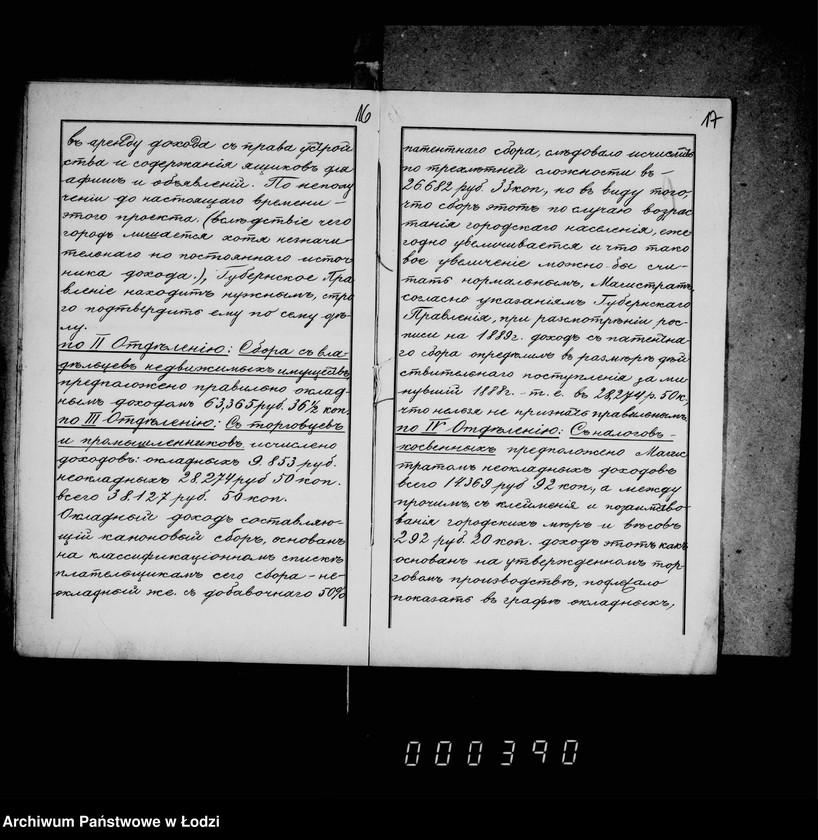 16
въ аренду дохода съ права устрой
ства и содержанія ящиковъ для
афишъ и объявленій. По неполу
ченіи до настоящаго времени –
этого проекта, (вслѣдствіе чего
городъ лишается хотя незначи
тельнаго но постояннаго источ
ника дохода), Губернское Пра
вленіе находитъ нужнымъ, стро
го подтвердить ему по сему дѣ
лу.
по II Отдѣленію: Сбора съ вла-
дѣльцевъ недвижимыхъ имуществъ,
предположено правильно оклад-
нымъ доходомъ 63,365 руб. 36½ коп.
по III Отдѣленію: Съ торговцевъ
и промышленниковъ исчислено
доходовъ: окладныхъ 9.853 руб.
неокладныхъ 28,274 руб 50 коп.
всего 38.127 руб. 50 коп.
Окладный доходъ составляю-
щій канонovый сборъ, основанъ
на классификаціонномъ спискѣ
плательщикамъ сего сбора – не-
окладный же. съ добавочнаго 50%
17
патентнаго сбора, слѣдовало исчислить
по трехлѣтней сложности въ –
26682 руб. 33 коп, но въ виду того,
что сборъ этотъ по случаю возрас
танія городскаго населенія, еже
годно увеличивается и что тако
вое увеличеніе можно бы счи-
тать нормальнымъ, Магистратъ,
согласно указаніямъ Губернскаго
Правленія, при разсмотрѣніи рос-
писи на 1889 г. доходъ съ патентна-
го сбора опредѣлилъ въ размѣрѣ дѣй
ствительнаго поступленія за ми-
нувшій 1888 г. – т. е. въ 28,274 р. 50 к,
что нельзя не признать правильнымъ.
по IV Отдѣленію: Съ налоговъ –
косвенныхъ предположено Магис
тратомъ неокладныхъ доходовъ
всего 14369 руб 92 коп., а между
прочимъ, съ клейменія и позаимство-
ванія городскихъ мѣръ и вѣсовъ
292 руб. 20 коп. доходъ этотъ какъ
основанъ на утвержденномъ тор-
говомъ производствѣ, подлежало
показать въ графѣ окладныхъ,
000390
Archiwum Państwowe w Łodzi